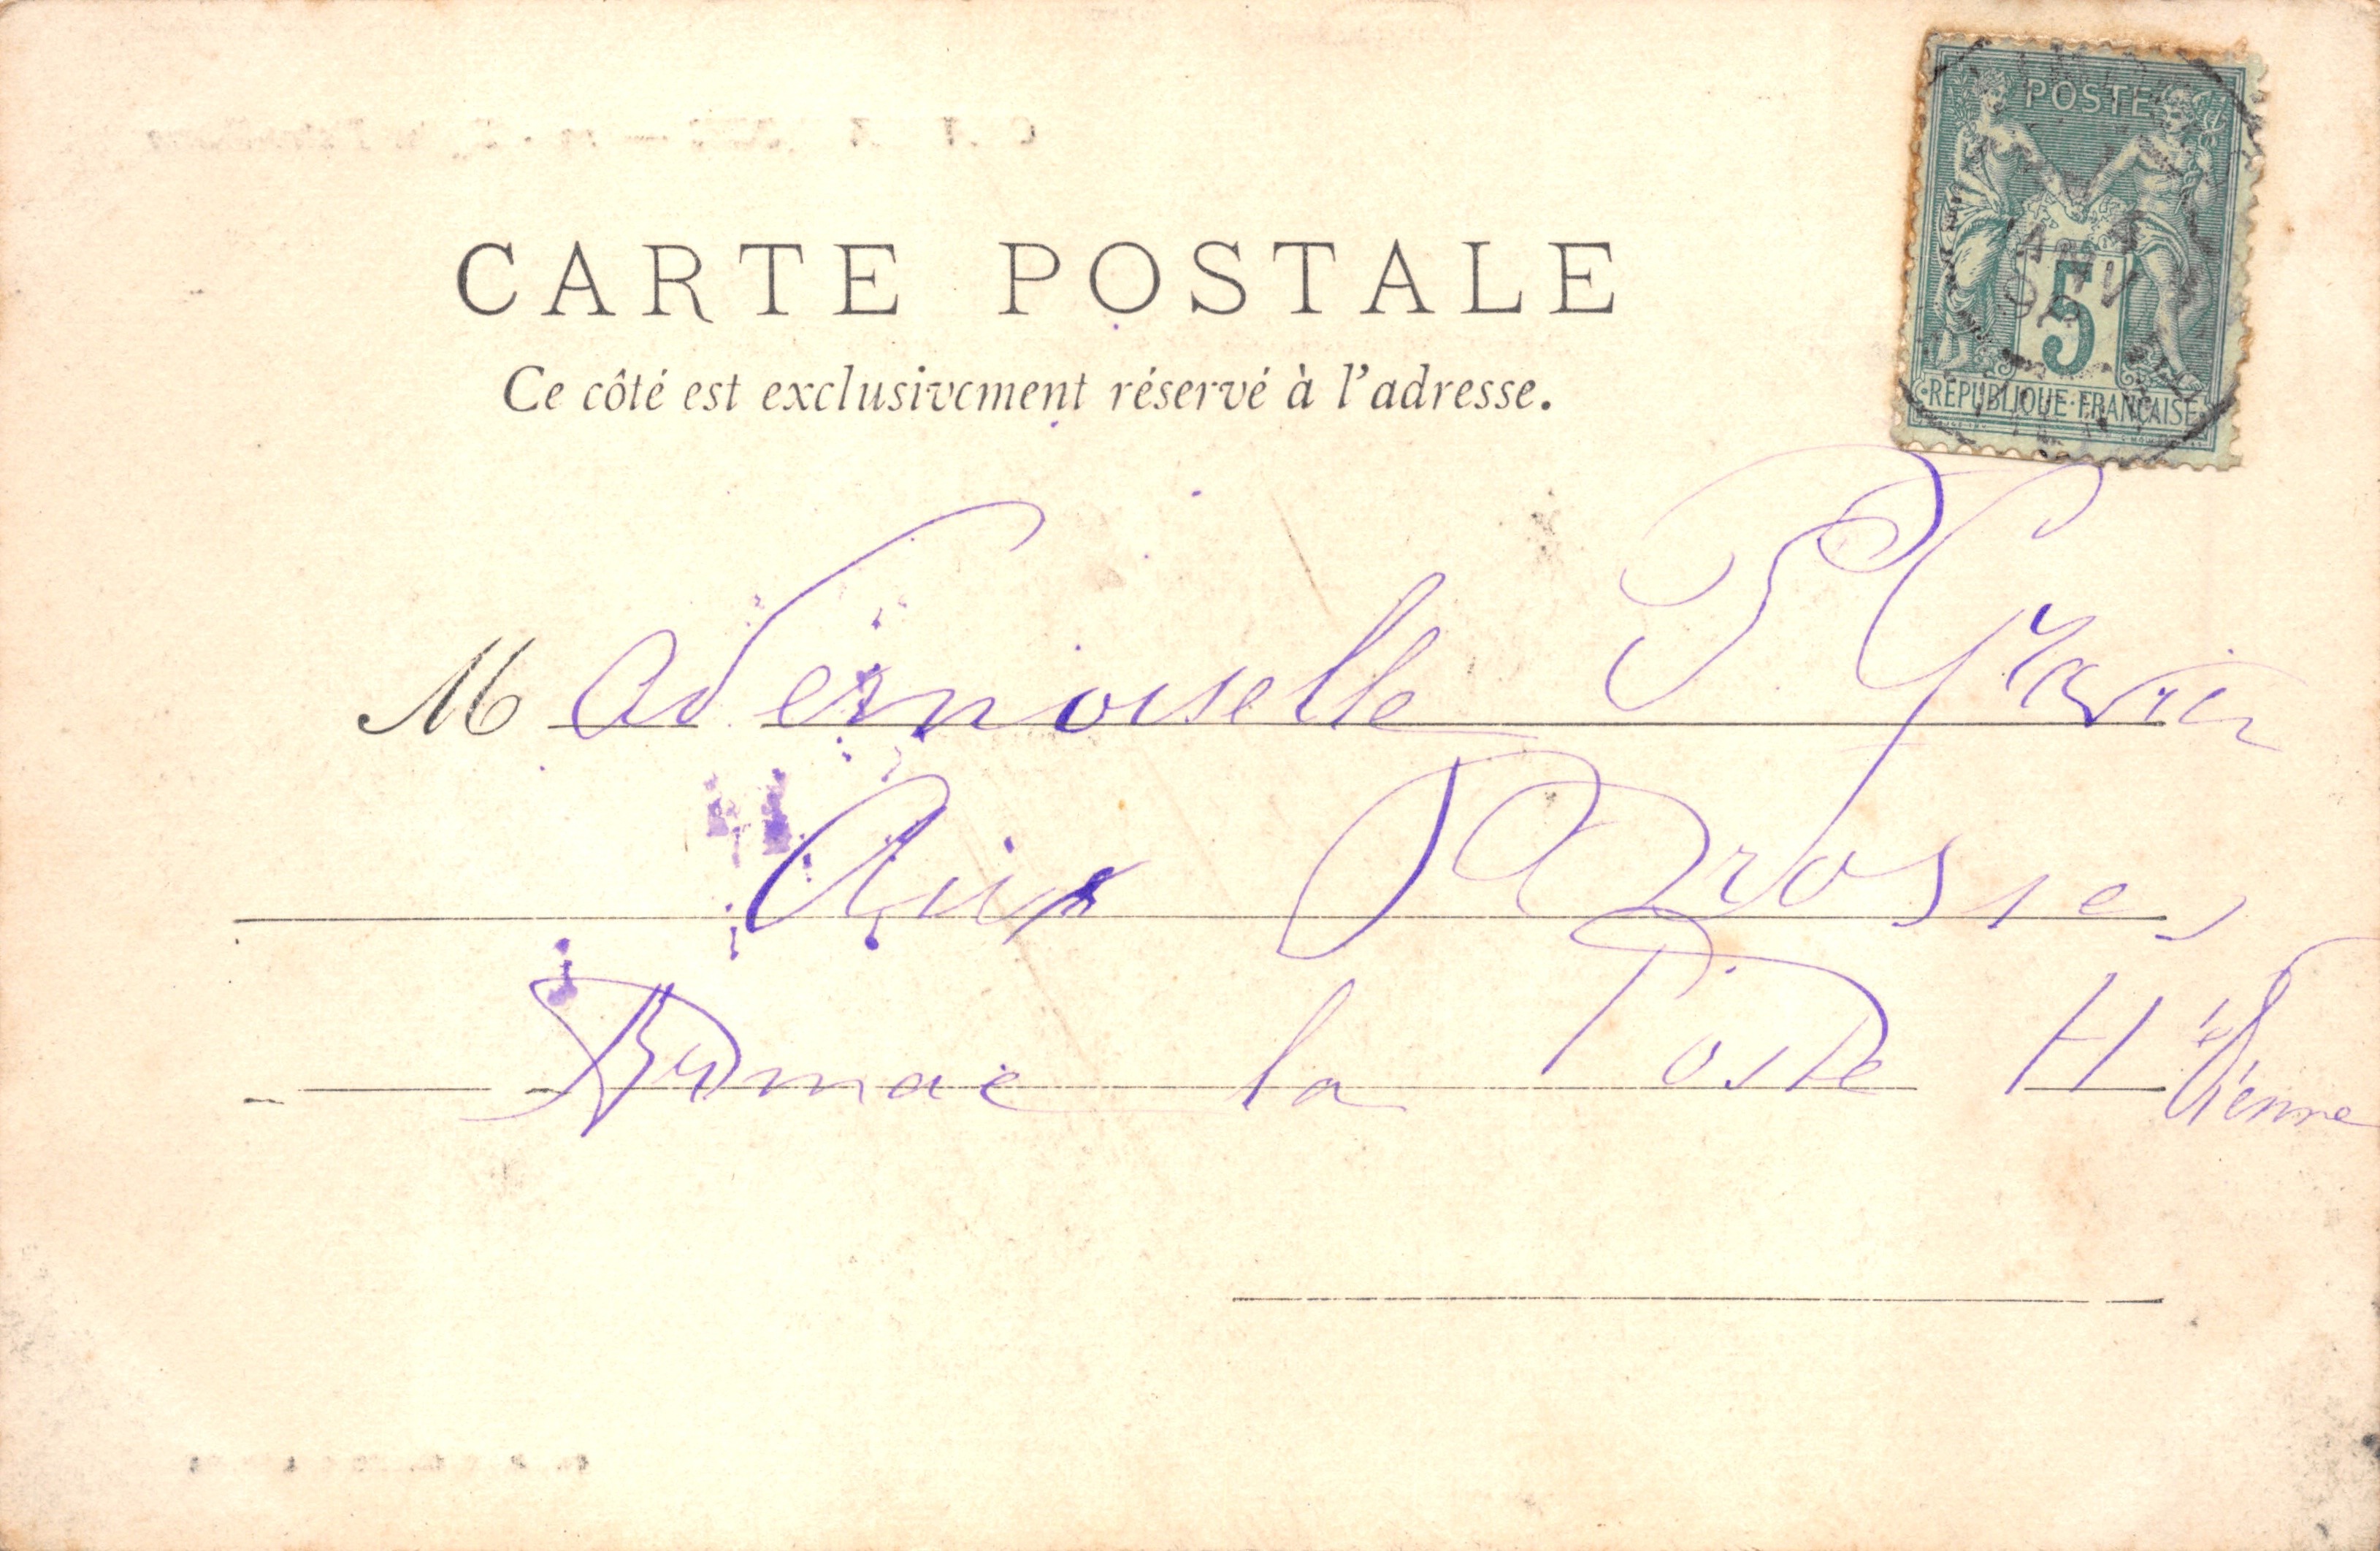 POSTE
5
RÉPUBLIQUE FRANÇAISE
CARTE POSTALE
Ce côté est exclusivement réservé à l'adresse.
Mademoiselle
Aux Brosses
la Poste Hte Vienne